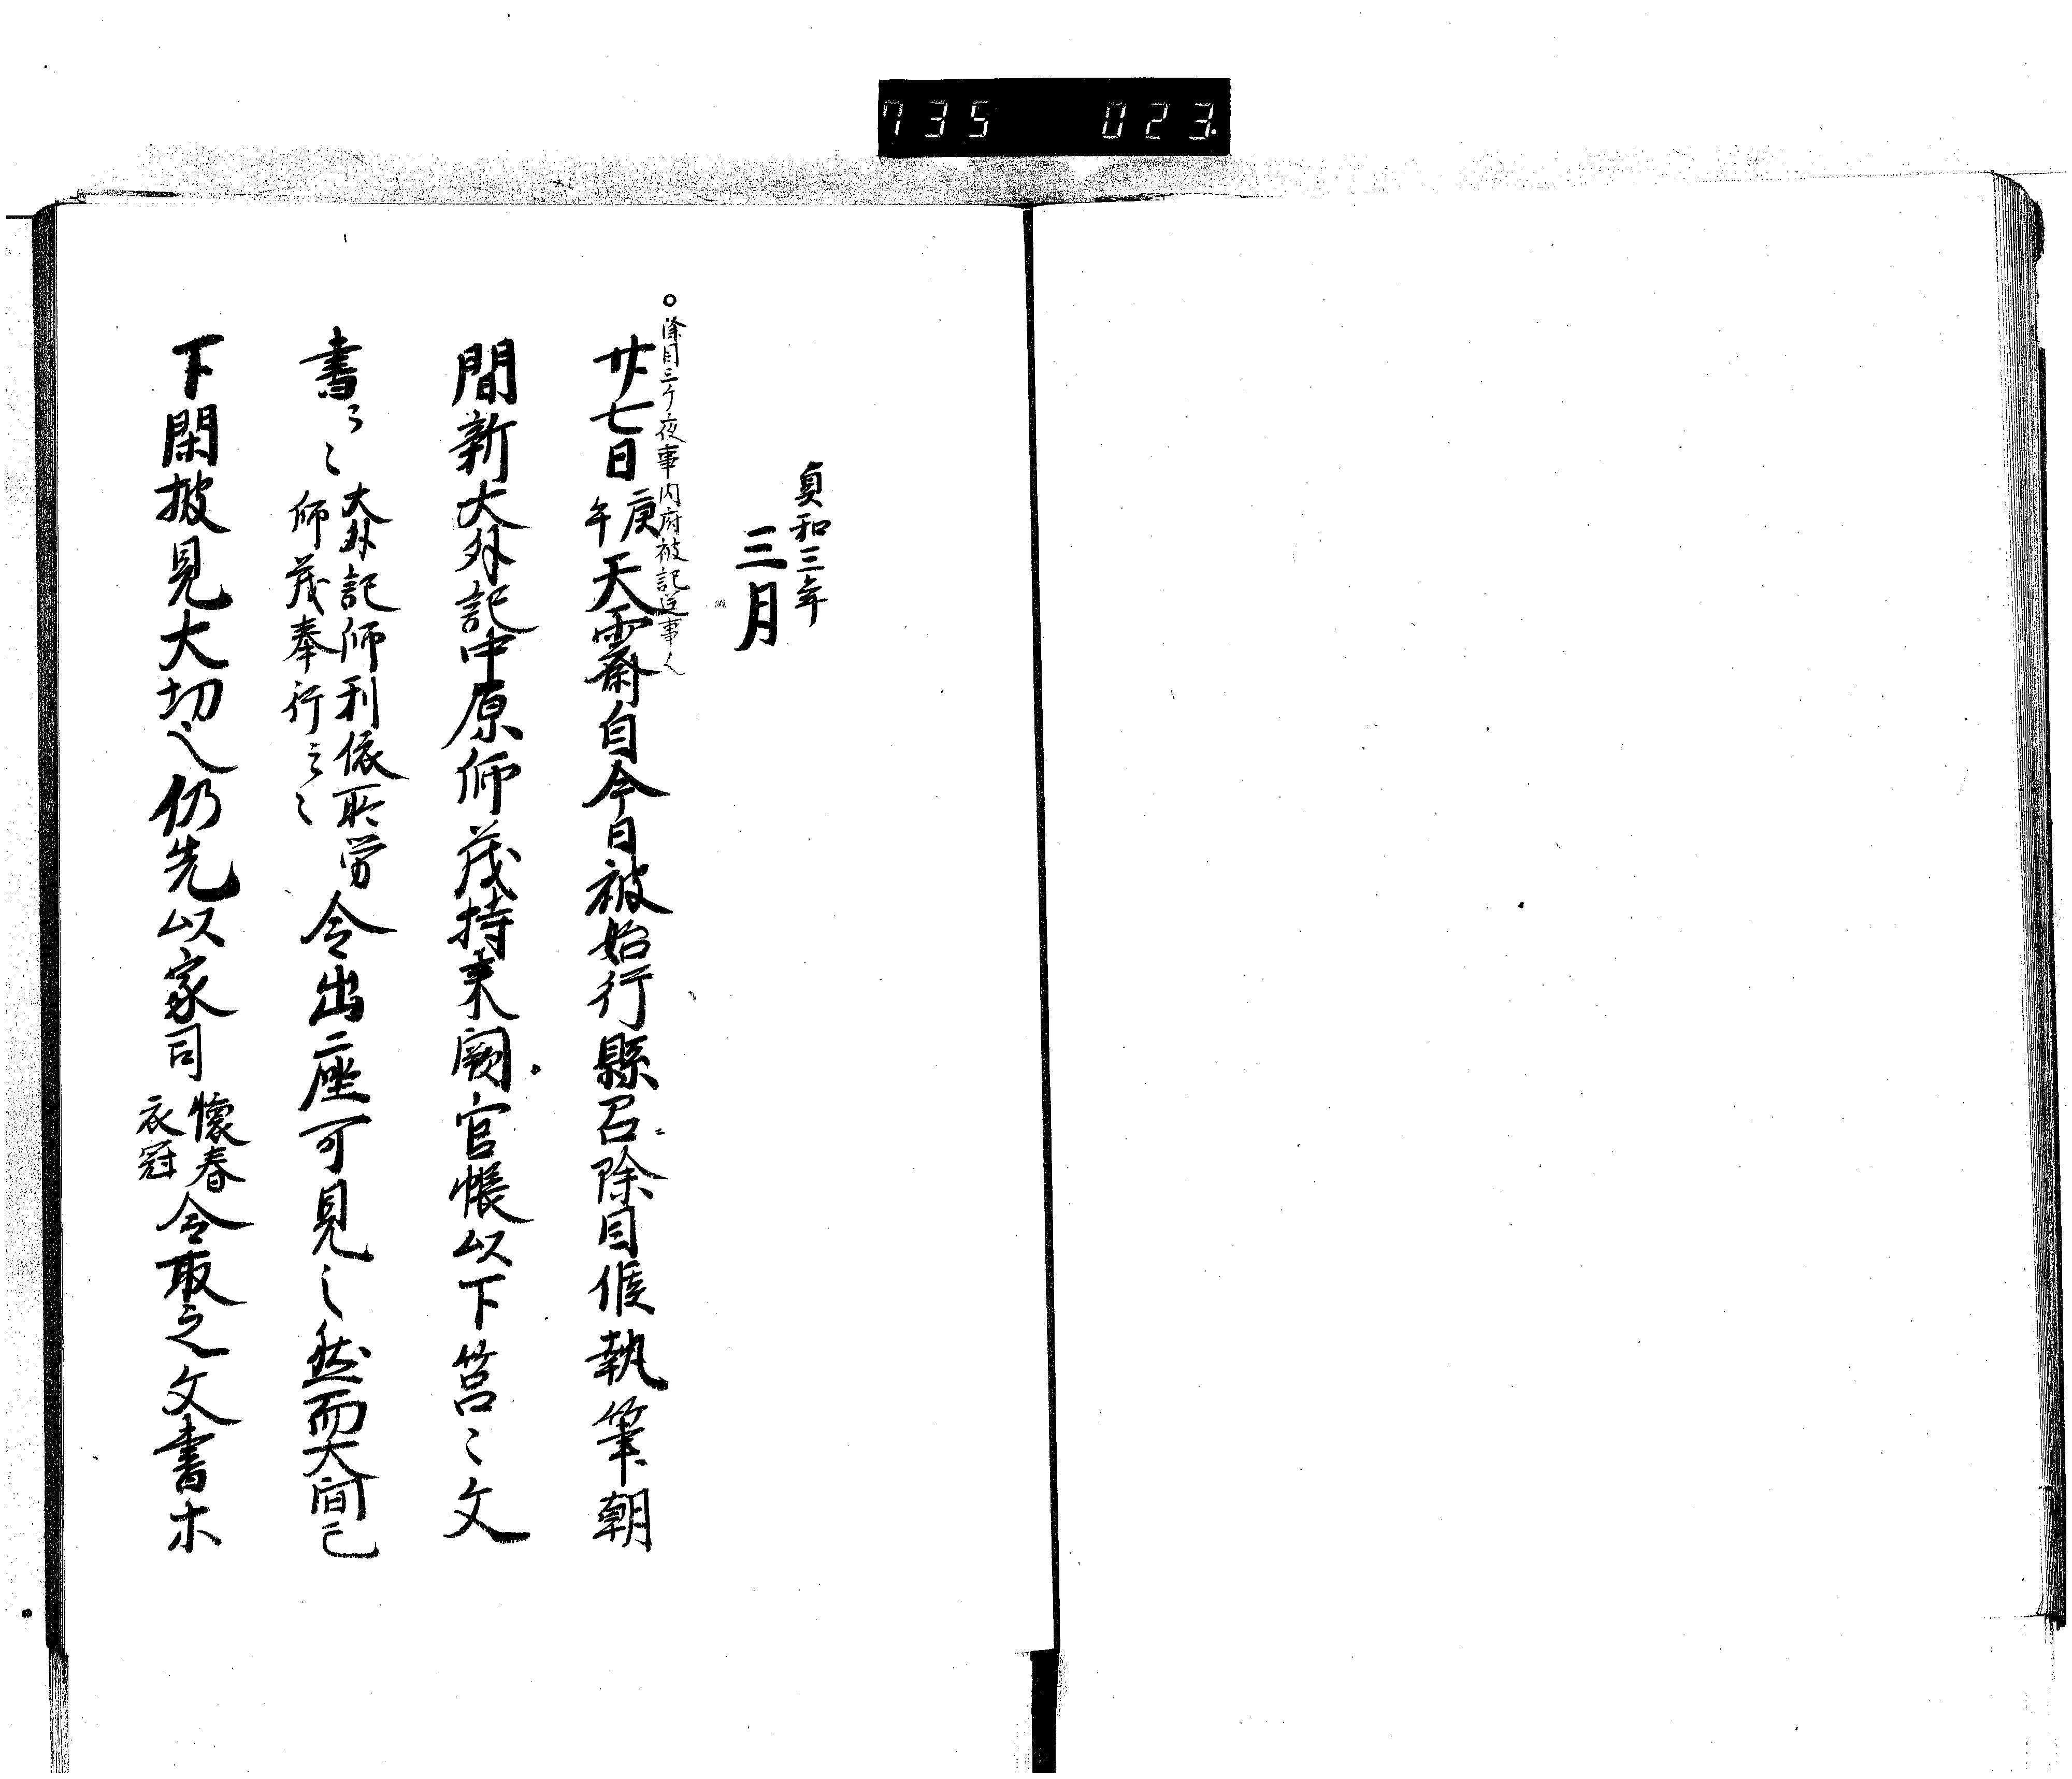 735 023.
貞和三年
三月
○除目三ケ夜事内府被記送事
廿七日庚午天霽自今日被始行縣召除目候執筆朝
間新大外記中原師茂持来闕官帳以下筥〻文
書〻〻大外記師利依所労師茂奉行云〻令出二座可見之然而大間已
下閑披見大切也仍先以家司懐春衣冠令取之文書木